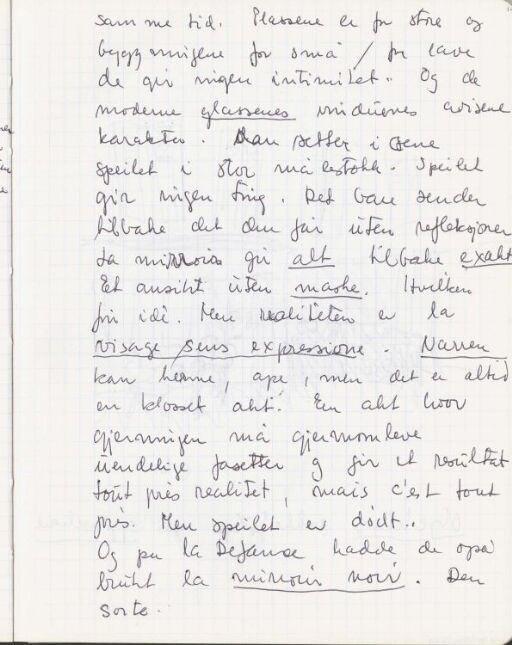 samme tid. Plassene er for store og
bygningene for små / for lave
de gir ingen intimitet.. Og de
moderne glassenes vinduenes avisene
karakter. Man setter i scene
speilet i stor målestokk. Speilet
gir ingen ting. Det bare sender
tilbake det den får uten refleksjoner
La miroir gir alt tilbake exakt
Et ansikt uten maske. Hvilken
fin idé. Men realiteten er la
visage sens expressione. Narren
kan herme, ape, men det er altid
en klosset akt. En akt hvor
gjerningen må gjennomleve
uendelige fasetter og gir et resultat
tout près realitet, mais c'est tout
près. Men speilet er dødt..
Og på la Defense hadde de også
brukt la mirroir noir. Den
sorte.